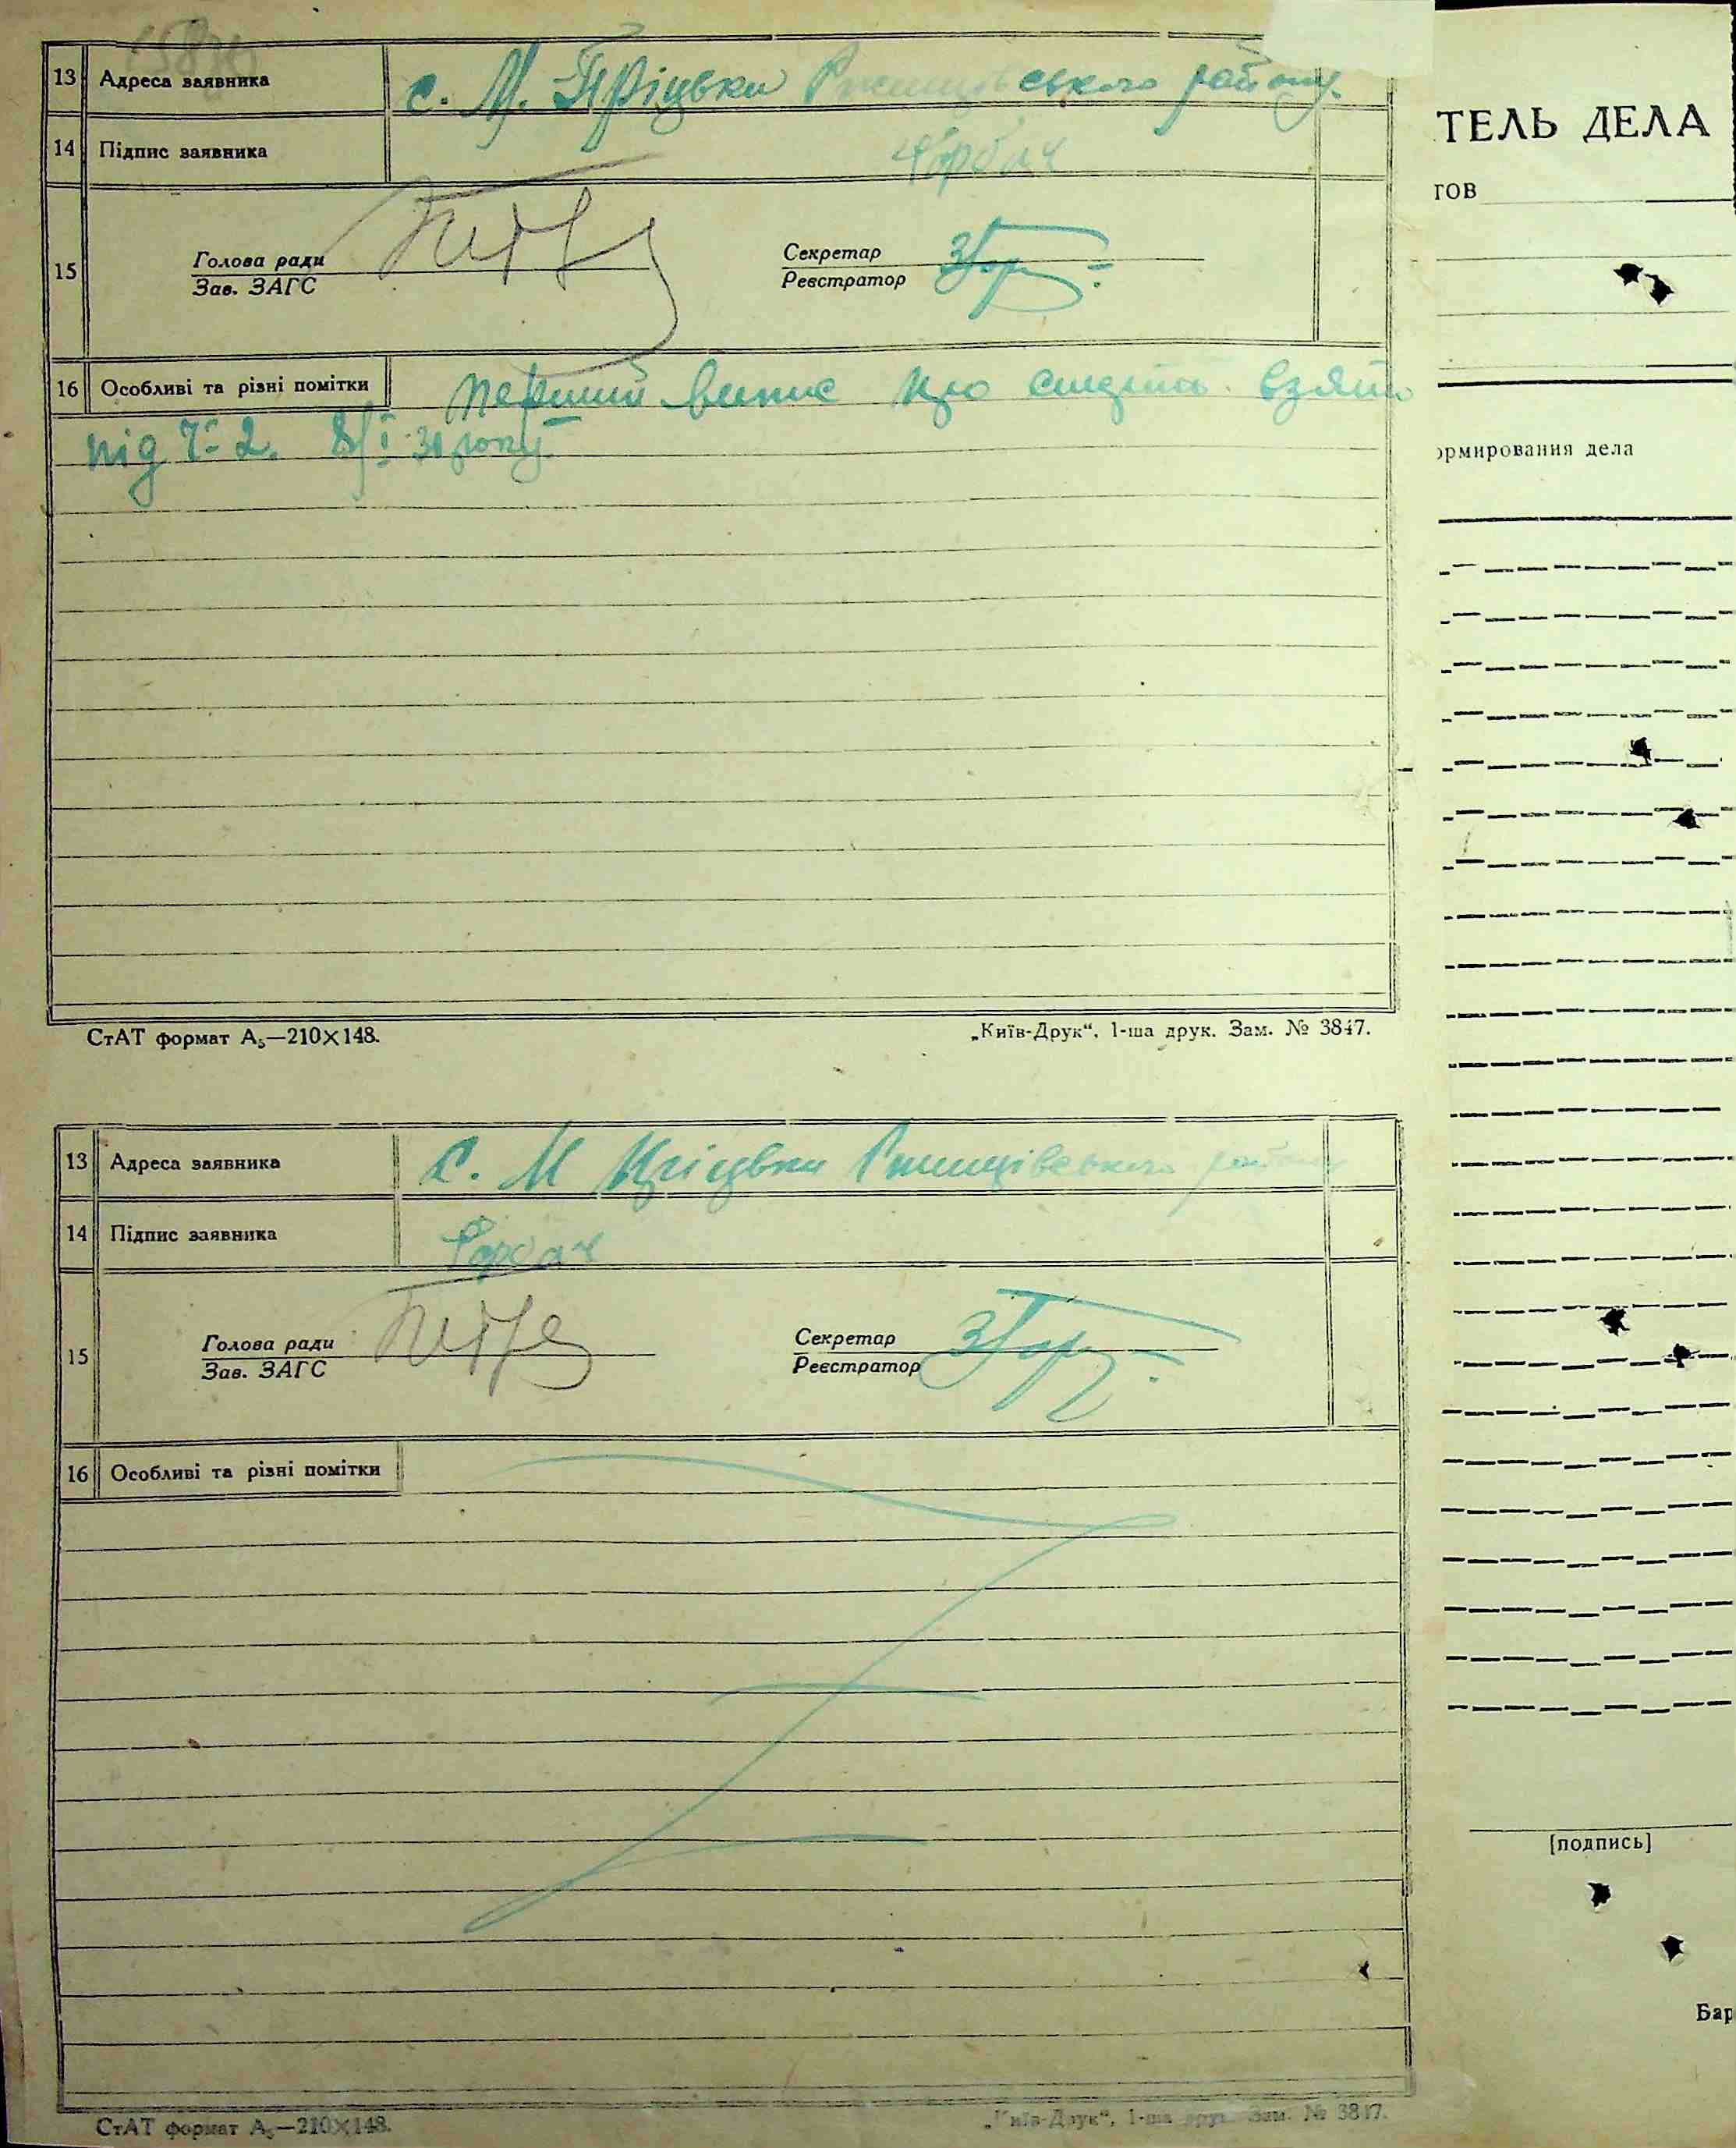 13 Адреса заявника с. М. Пріцьки Ржищівського району.
14 Підпис заявника Горбач
15 Голова ради
Зав. ЗАГС
Секретар
Реєстратор
16 Особливі та різні помітки перший випис про смерть взято
під Ч 2. 8/I 31 року.
СтАТ формат А₅—210×148. „Київ-Друк“, 1-ша друк. Зам. № 3847.
13 Адреса заявника С. М Пріцьки Ржищівського району
14 Підпис заявника Горбач
15 Голова ради
Зав. ЗАГС
Секретар
Реєстратор
16 Особливі та різні помітки
СтАТ формат А₅—210×148. „Київ-Друк“, 1-ша друк. Зам. № 3847.
ТЕЛЬ ДЕЛА
тов
ормирования дела
[подпись]
Бар